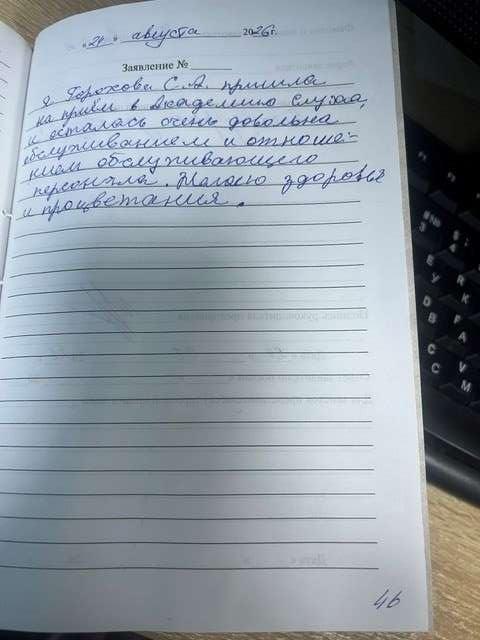 "21" августа 2026г.
Заявление №
Я Горохова С.А. пришла
на приём в Академию слуха,
и осталась очень довольна
обслуживанием и отноше-
нием обслуживающего
персонала. Желаю здоровья
и процветания.
46
№ ;
3 4
Е К
У
D R
В А
С М
С V